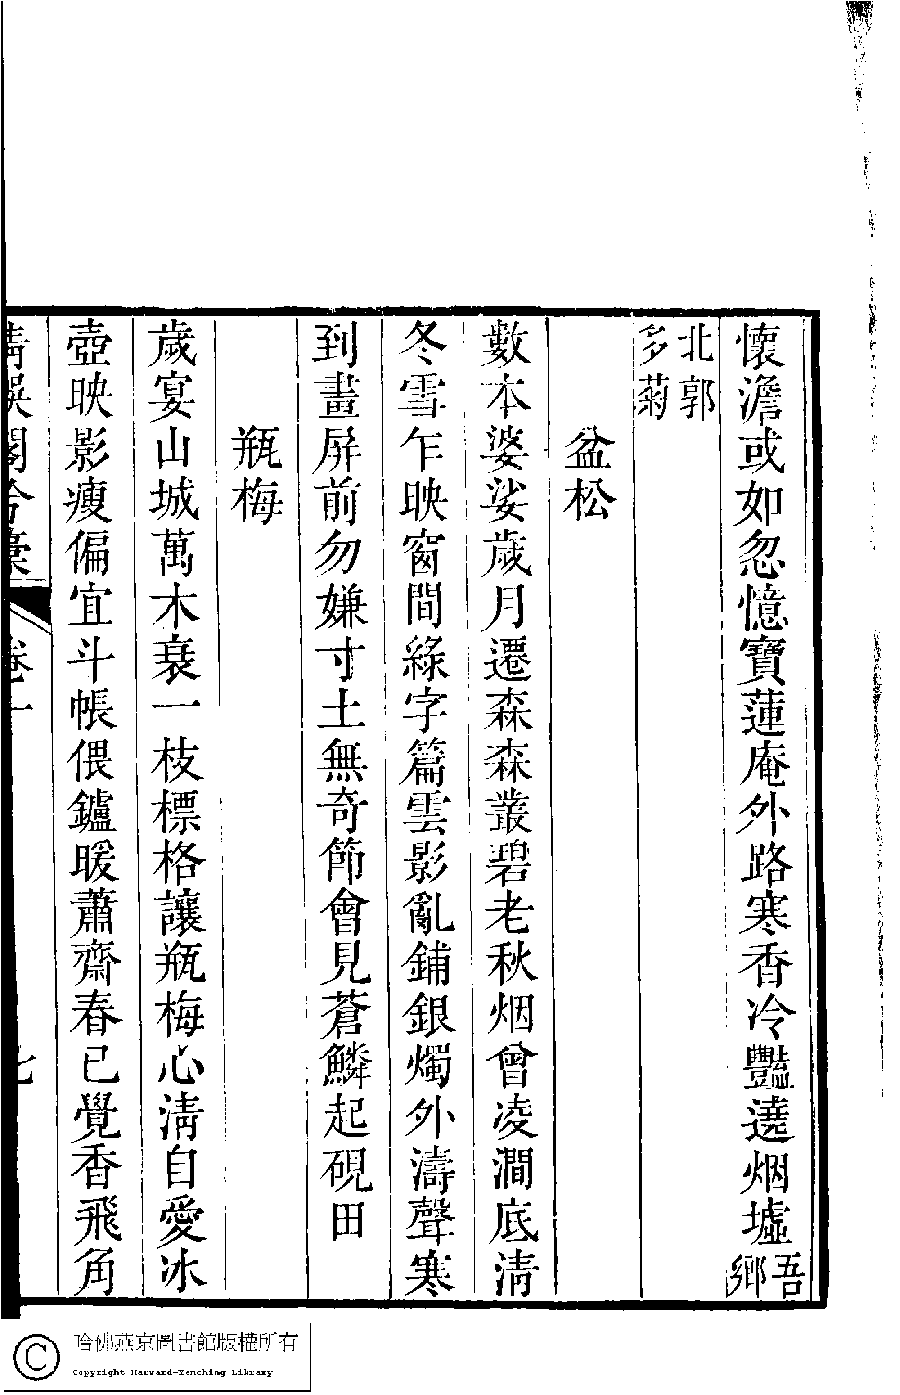 懷澹或如忽憶寶蓮庵外路寒香冷豔遶烟墟吾鄉
北郭多菊
盆松
數本婆娑歲月遷森森叢碧老秋烟曾凌澗底淸
冬雪乍映窗間綠字篇雲影亂鋪銀燭外濤聲寒
到畫屏前勿嫌寸土無奇節會見蒼鱗起硯田
瓶梅
歲宴山城萬木衰一枝標格讓瓶梅心淸自愛冰
壺映影瘦偏宜斗帳偎鑪暖蕭齋春已覺香飛角
哈佛燕京圖書館版權所有
Copyright Harvard-Yenching Library